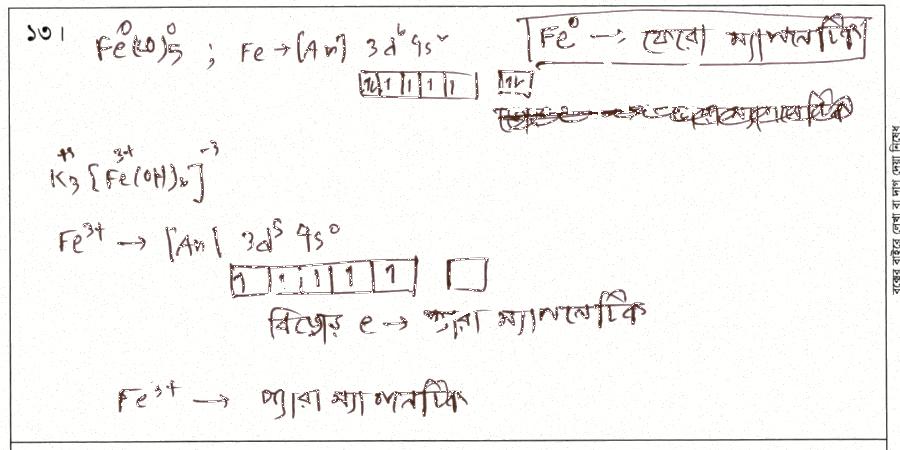 ১৩। Fe(CO)5 ; Fe → [Ar] 3d⁶ 4s² Fe⁰ → ফেরো ম্যাগনেটিক
0 0
1L 1 1 1 1 1L
+3 3+ -3
K3 [Fe(OH)6]
Fe³⁺ → [Ar] 3d⁵ 4s⁰
1 1 1 1 1
বিজোড় e → প্যারা ম্যাগনেটিক
Fe³⁺ → প্যারা ম্যাগনেটিক
বক্সের বাইরে লেখা বা দাগ দেয়া নিষেধ